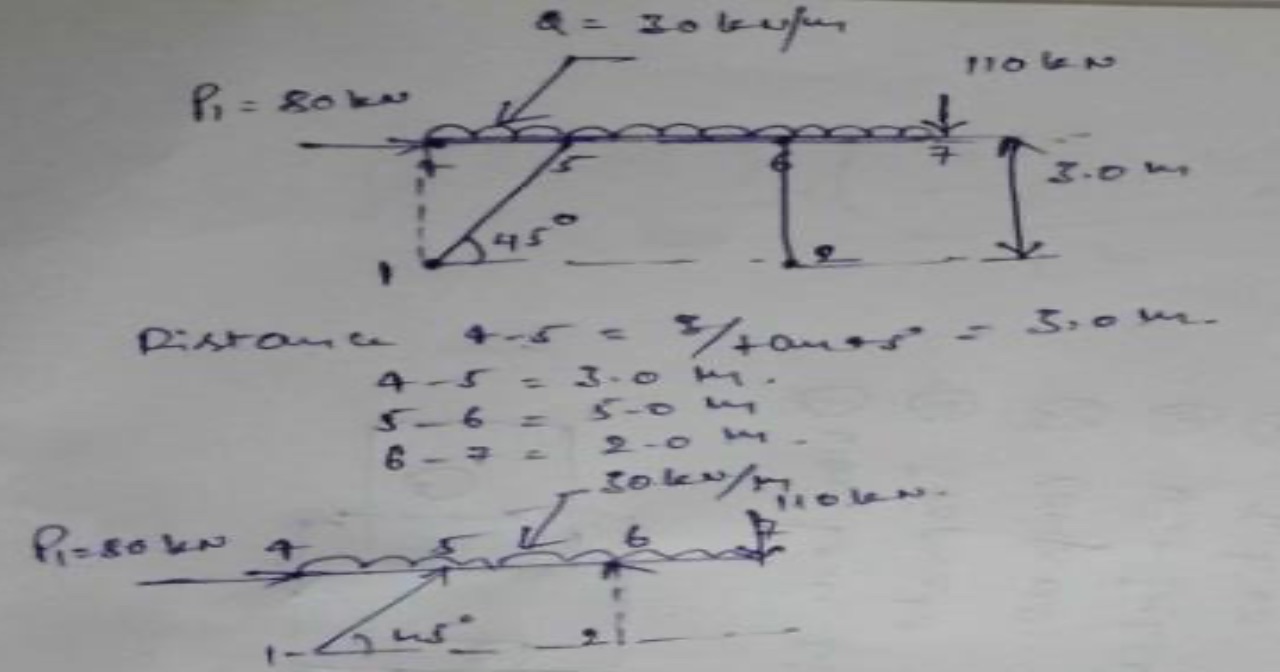 Q = 30 kN/m
110 kN
P1 = 80 kN
4 5 6 7
3.0 m
45°
1 2
Distance 4-5 = 3/tan45° = 3.0 m.
4-5 = 3.0 m.
5-6 = 5.0 m
6-7 = 2.0 m.
30 kN/m
110 kN.
P1=80 kN 4 5 6 7
1 45° 2